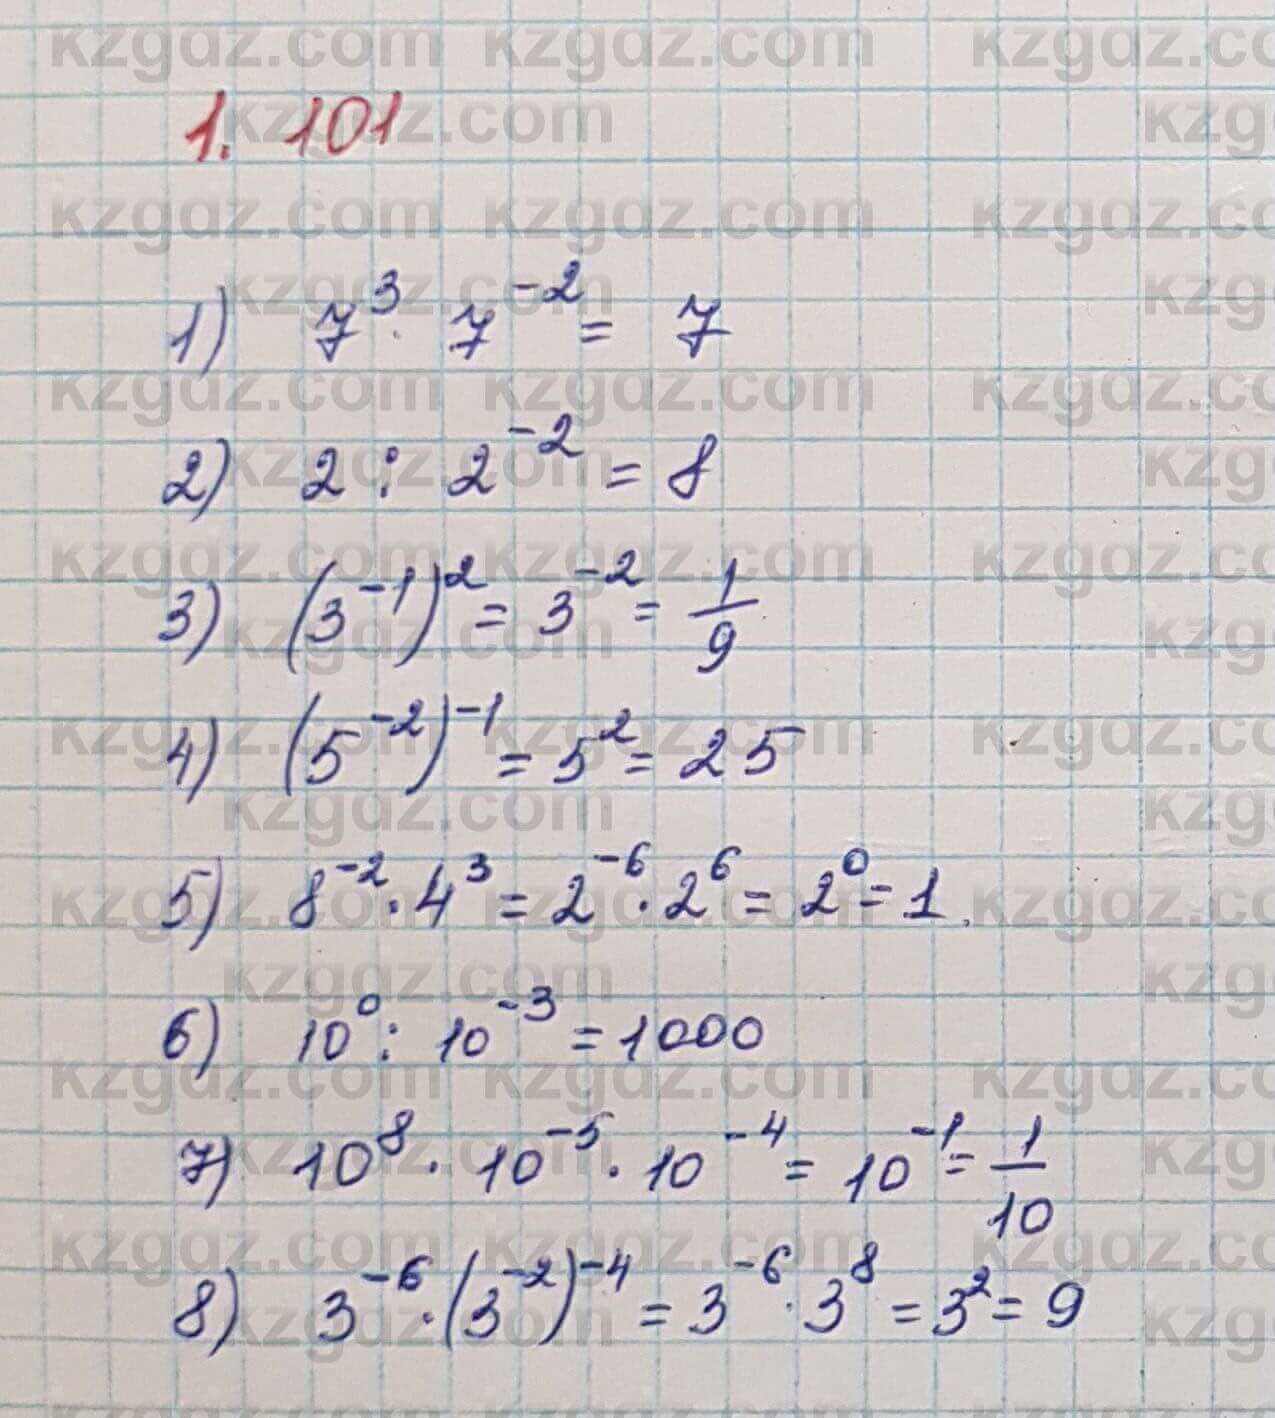 1. 101
1) 7³ · 7⁻² = 7
2) 2 : 2⁻² = 8
3) (3⁻¹)² = 3⁻² = 1/9
4) (5⁻²)⁻¹ = 5² = 25
5) 8⁻² · 4³ = 2⁻⁶ · 2⁶ = 2⁰ = 1.
6) 10⁰ : 10⁻³ = 1000
7) 10⁸ · 10⁻⁵ · 10⁻⁴ = 10⁻¹ = 1/10
8) 3⁻⁶ · (3⁻²)⁻⁴ = 3⁻⁶ · 3⁸ = 3² = 9
kzgdz.com